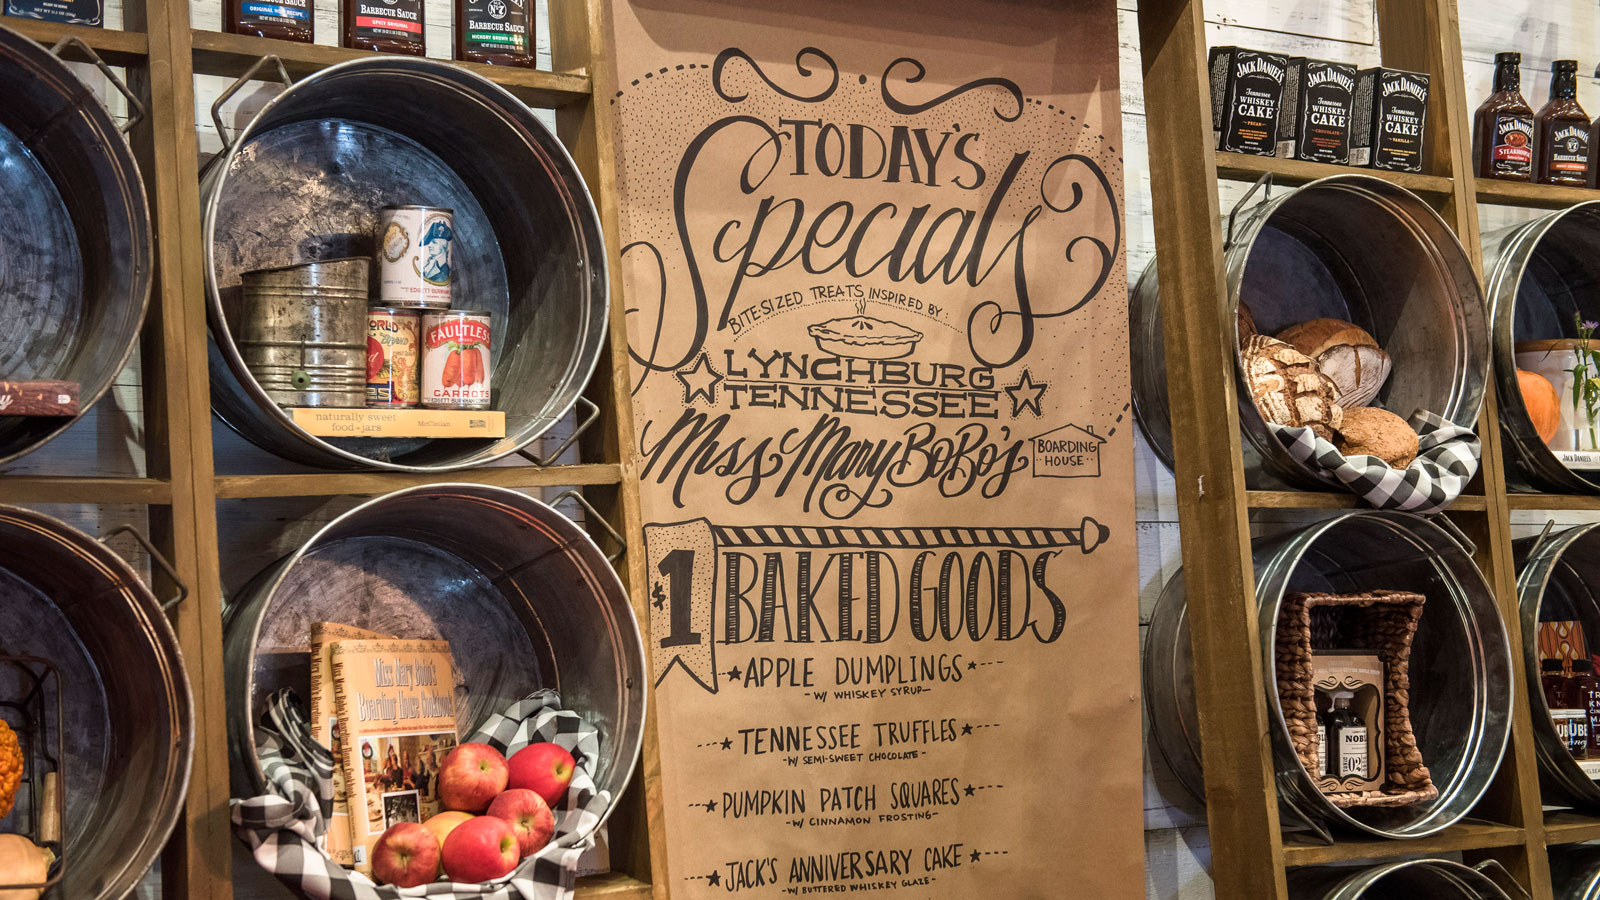 TODAY'S
Specials
BITE-SIZED TREATS INSPIRED BY
LYNCHBURG
TENNESSEE
Miss Mary BoBo's
BOARDING
HOUSE
$1
BAKED GOODS
APPLE DUMPLINGS
- W/ WHISKEY SYRUP -
TENNESSEE TRUFFLES
- W/ SEMI-SWEET CHOCOLATE -
PUMPKIN PATCH SQUARES
- W/ CINNAMON FROSTING -
JACK'S ANNIVERSARY CAKE
- W/ BUTTERED WHISKEY GLAZE -
BARBECUE SAUCE
BARBECUE SAUCE
SPICY ORIGINAL
No 7
BARBECUE SAUCE
FAULTLESS
CARROTS
EDGETT-BURNHAM
naturally sweet
food in jars
McClellan
Miss Mary Bobo's
Boarding House Cookbook
JACK DANIEL'S
Tennessee
WHISKEY
CAKE
PECAN
JACK DANIEL'S
Tennessee
WHISKEY
CAKE
CHOCOLATE
JACK DANIEL'S
Tennessee
WHISKEY
CAKE
VANILLA
JACK DANIEL'S
STEAKHOUSE
JACK DANIEL'S
BARBECUE SAUCE
JACK DANIEL'S
02